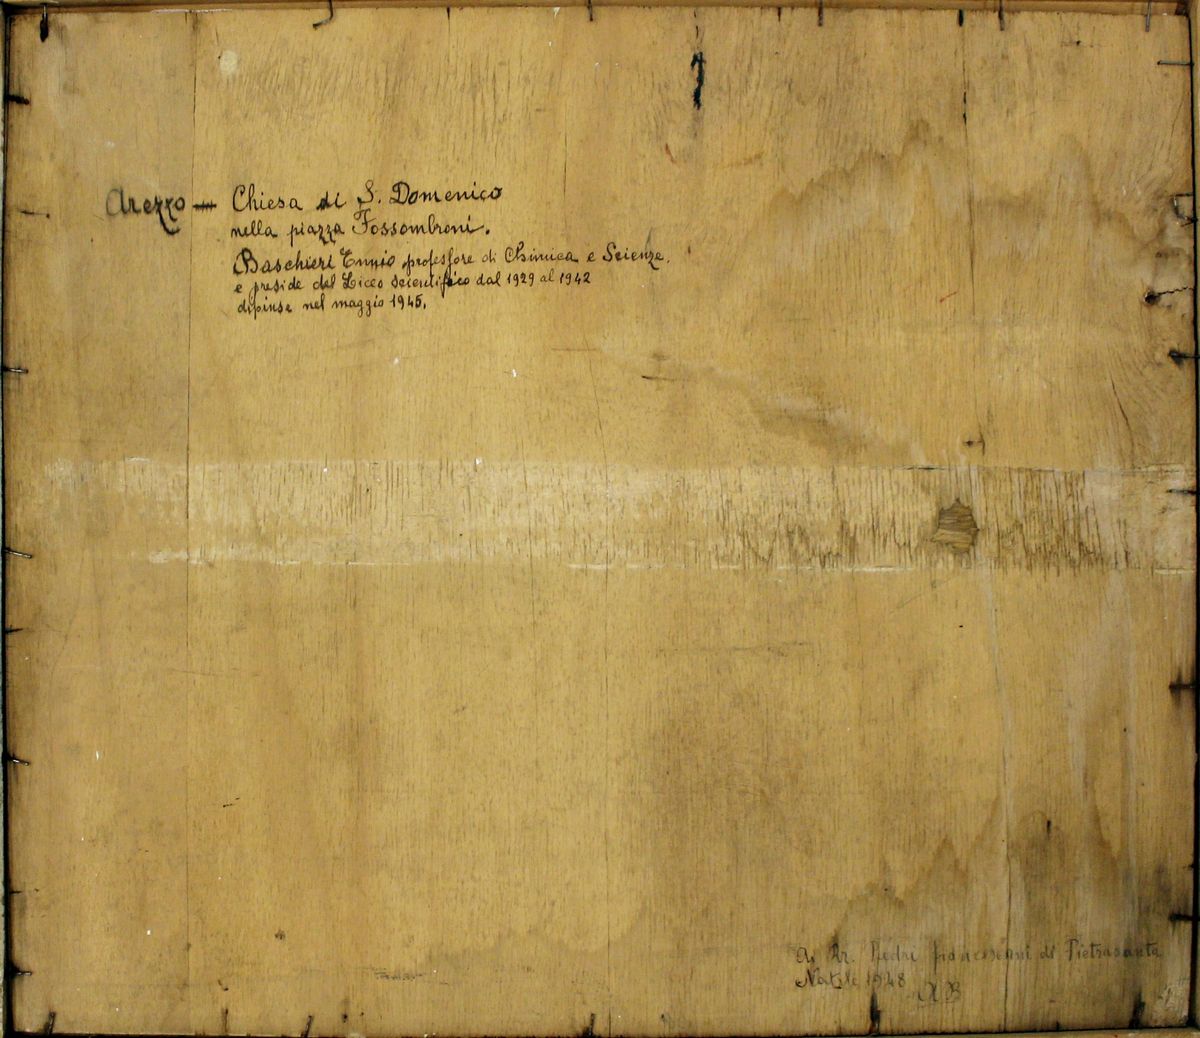 Arezzo — Chiesa di S. Domenico
nella piazza Fossombroni.
Baschieri Ennio professore di Chimica e Scienze,
e preside del Liceo scientifico dal 1929 al 1942
dipinse nel maggio 1945.
Ai Rr. Padri francescani di Pietrasanta
Natale 1948